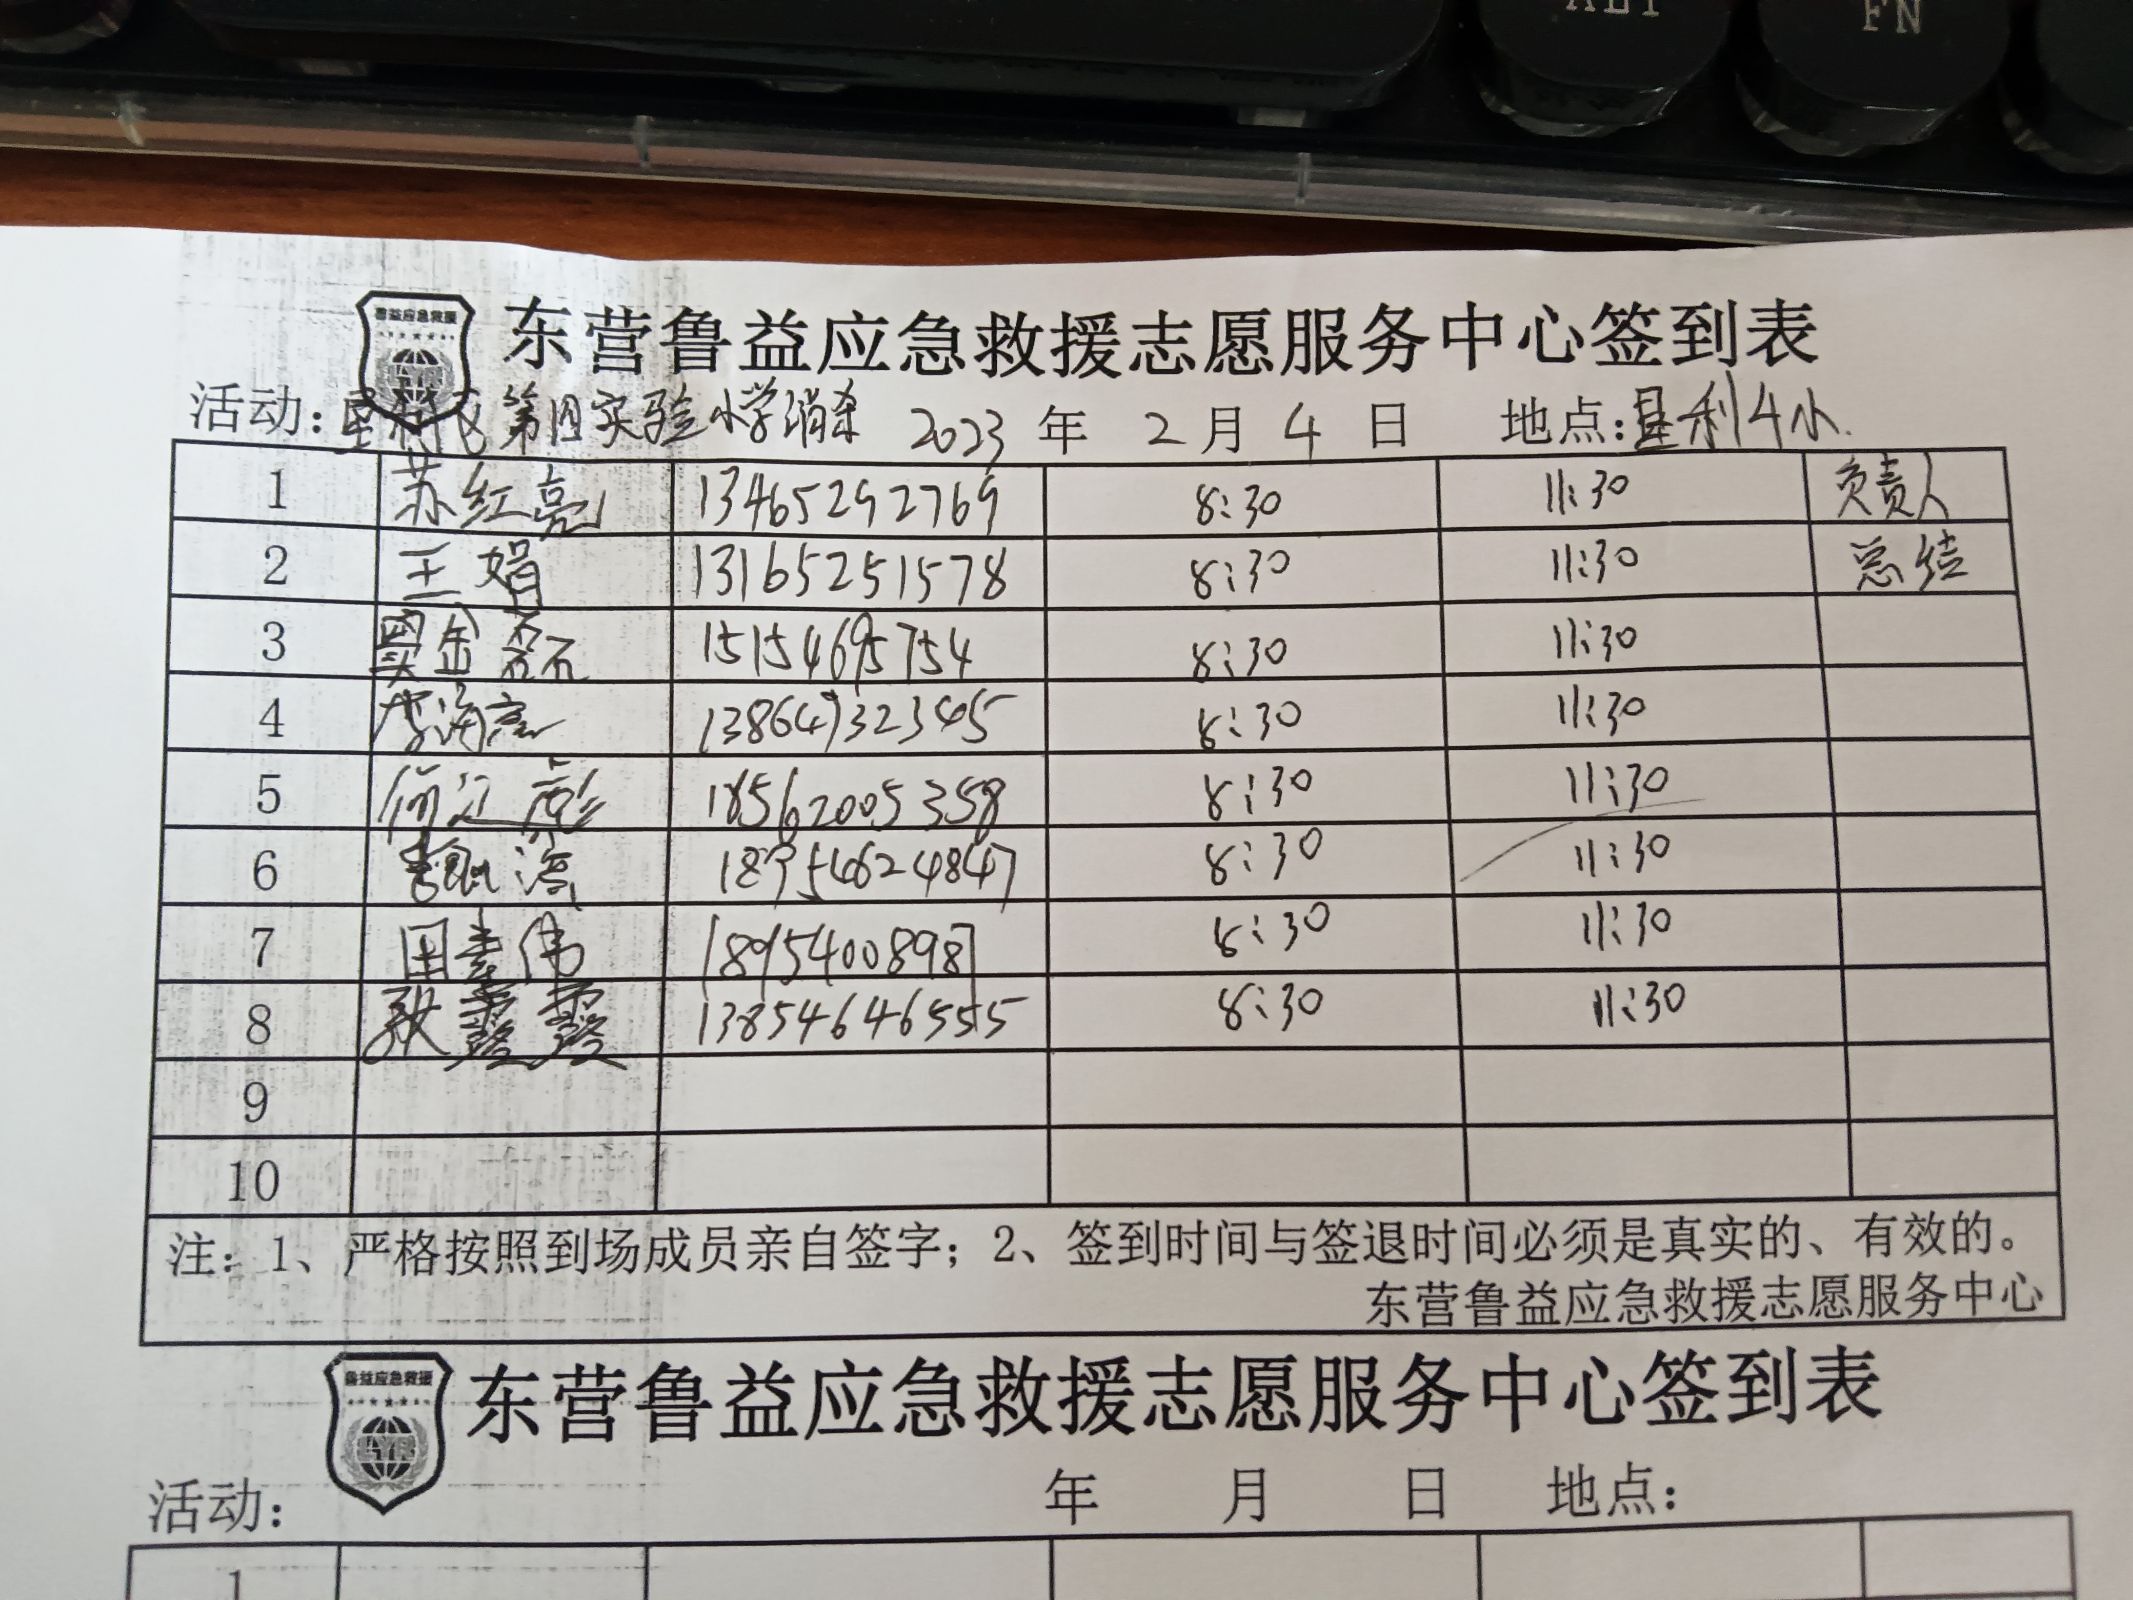 FN
鲁益应急救援
东营鲁益应急救援志愿服务中心签到表
活动：垦利区第四实验小学消杀 2023 年 2 月 4 日 地点：垦利4小.
1 苏红亮 13465292769 8:30 11:30 负责人
2 王娟 13165251578 8:30 11:30 总结
3 15154695754 8:30 11:30
4 李海亮 13864732345 8:30 11:30
5 18562005358 8:30 11:30
6 18954624847 8:30 11:30
7 田素伟 18954008987 8:30 11:30
8 张露露 13854646555 8:30 11:30
9
10
注：1、严格按照到场成员亲自签字；2、签到时间与签退时间必须是真实的、有效的。
东营鲁益应急救援志愿服务中心
鲁益应急救援
东营鲁益应急救援志愿服务中心签到表
活动： 年 月 日 地点：
1